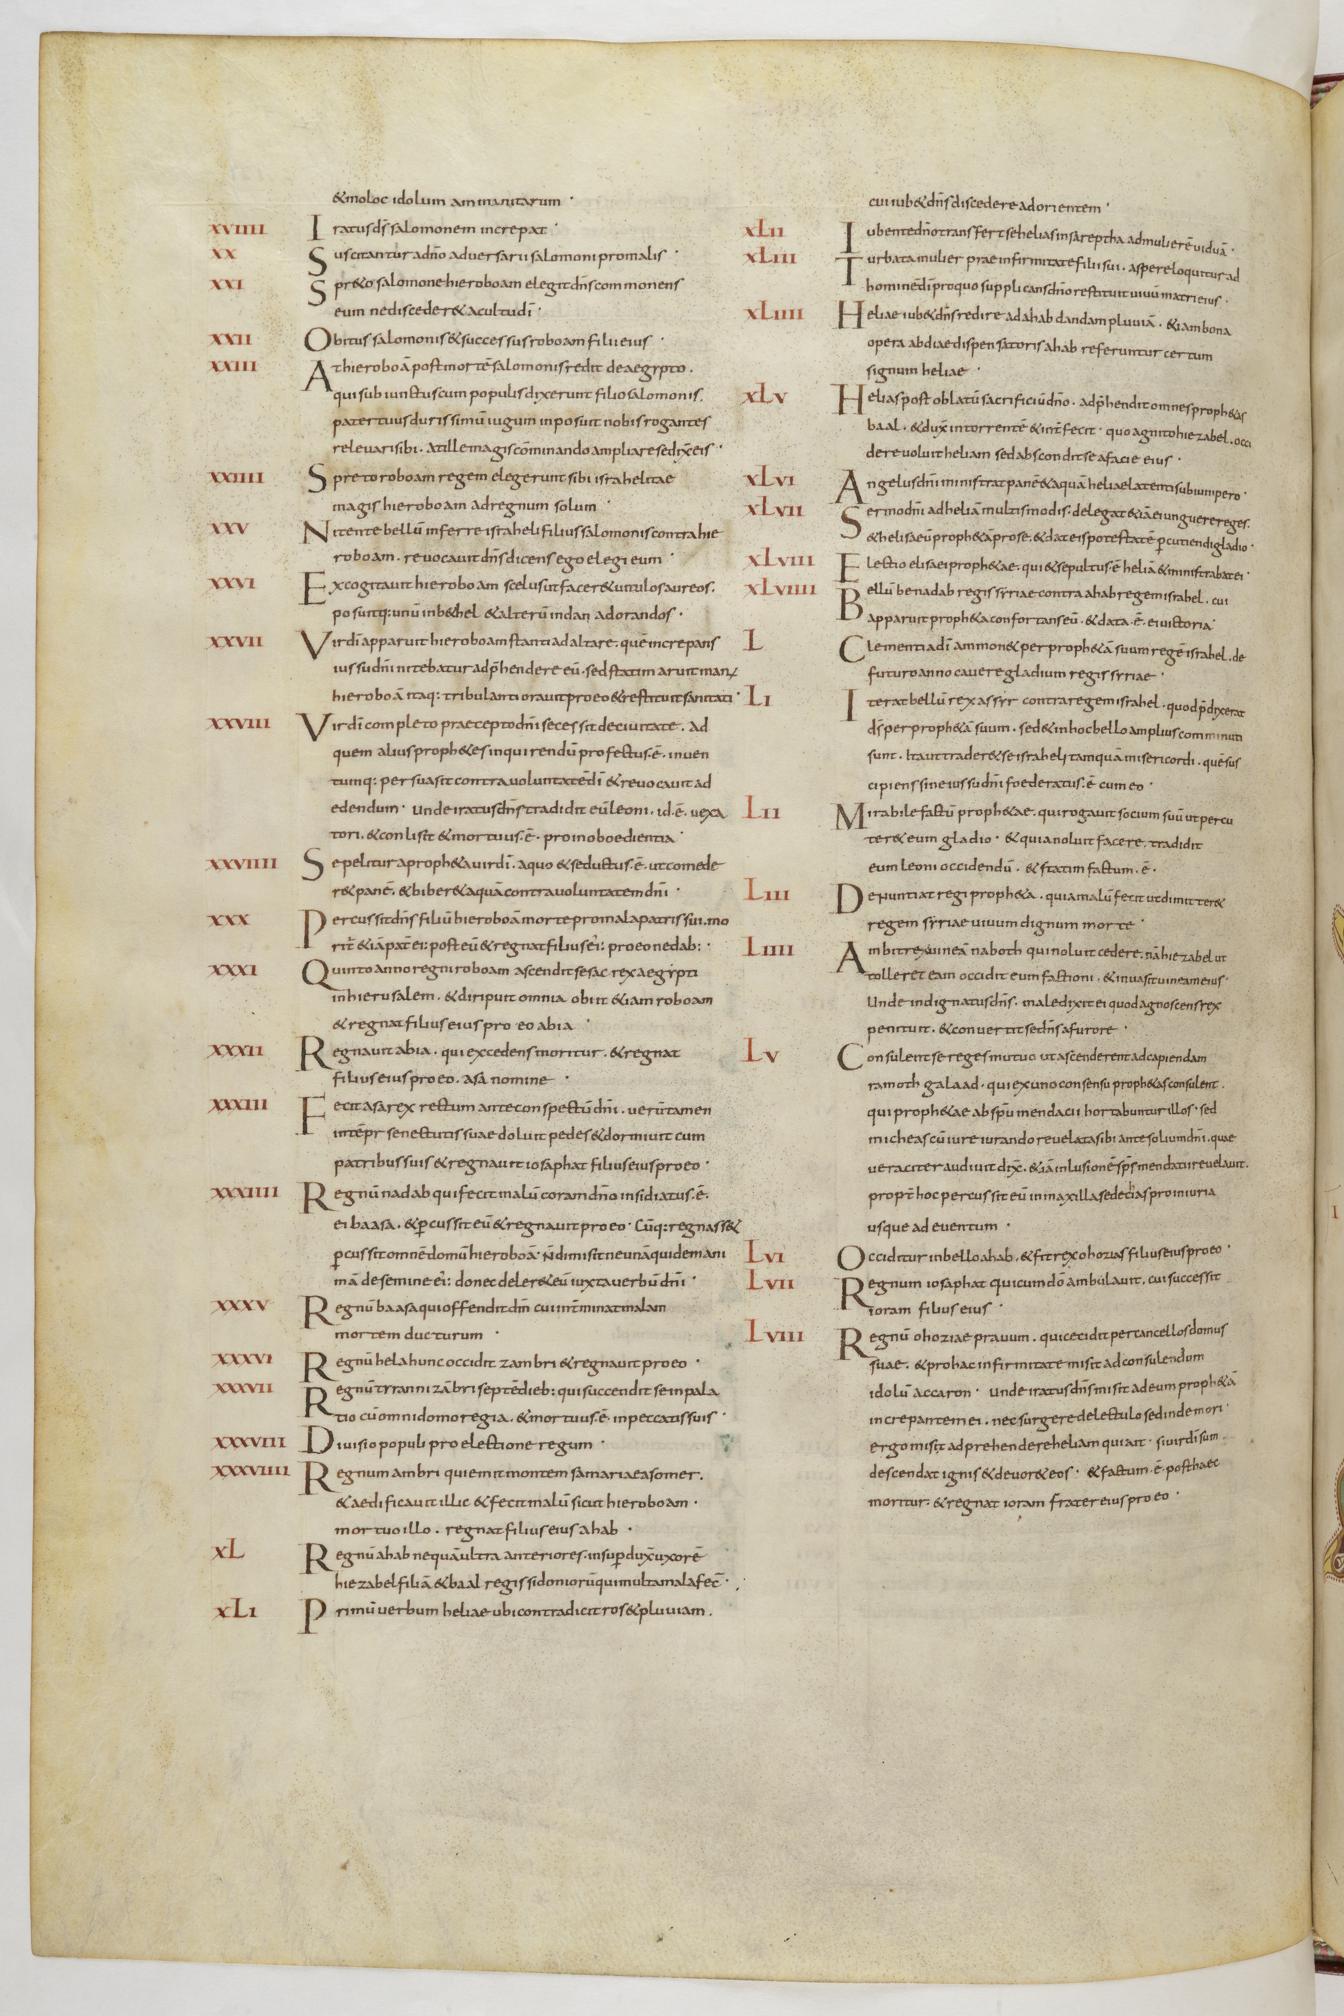 &moloc idolum ammanitarum ·
XVIIII Iratus dś salomonem increpat ·
XX Suscitantur adńo adversarii salomoni pro malis ·
XXI Spr&o salomone hieroboam elegit dńs commonens
eum ne disceder& a cultu dī ·
XXII Obitus salomonis & successus roboam filii eius ·
XXIII At hieroboā post mortē salomonis redit de aegypto .
qui subiunctus cum populis dixerunt filio salomonis .
pater tuus durissimū iugum inposuit nobis rogantes
relevari sibi . at ille magis cōminando ampliare se dix̄ eis ·
XXIIII Spreto roboam regem elegerunt sibi israhelitae
magis hieroboam ad regnum solum ·
XXV Nitente bellū inferre israheli filius salomonis contra hie
roboam . revocavit dńs dicens ego elegi eum ·
XXVI Excogitavit hieroboam scelus ut facer& vitulos aureos .
posuitq: unū in b&hel &alterū in dan adorandos ·
XXVII Vir dī apparuit hieroboam stanti ad altare . quē increpans
iussu dńi nitebatur adp̄hendere eū . sed statim aruit manꝰ
hieroboā itaq: tribulanti oravit pro eo & restituit sanitati ·
XXVIII Vir dī completo praecepto dńi secessit de civitate . ad
quem alius proph&es inquirendū profectus . ē . inven
tumq: persuasit contra voluntatē dī & revocavit ad
edendum · unde iratus dńs tradidit eū leoni . id . ē . vexa
tori . & conlisit & mortuus . ē . pro inoboedientia ·
XXVIIII Sepelitur a proph&a vir dī . a quo & seductus . ē . ut comede
r& panē . & biber& aquā contra voluntatem dńi ·
XXX Percussit dńs filiū hieroboā morte pro mala patris sui . mo
rit̄ &iā pat̄ ei: post eū & regnat filius ei: pro eo nedab: ·
XXXI Quinto anno regni roboam ascendit sesac rex aegypti
in hierusalem . & diripuit omnia obiit &iam roboam
& regnat filius eius pro eo abia ·
XXXII Regnavit abia . qui excedens moritur . & regnat
filius eius pro eo . asa nomine ·
XXXIII Fecit asa rex rectum ante conspectū dńi . verūtamen
intēpr senectutis suae doluit pedes & dormivit cum
patribus suis & regnavit iosaphat filius eius pro eo ·
XXXIIII Regnū nadab qui fecit malū coram dńo insidiatus . ē .
ei baasa . & p̄cussit eū & regnavit pro eo · Cūq: regnass&
p̄cussit omnē domū hieroboā · ń dimisit ne unā quidem ani
mā de semine ei: donec deler& eū iuxta verbū dńi ·
XXXV Regnū baasa qui offendit dńm cui int̄minat malam
mortem ducturum ·
XXXVI Regnū hela hunc occidit zambri & regnavit pro eo ·
XXXVII Regnū tyranni zābri septē dieb: qui succendit se in pala
tio cū omni domo regia . & mortuus . ē . in peccatis suis ·
XXXVIII Divisio populi pro electione regum ·
XXXVIIII Regnum ambri qui emit montem samariae a somer .
& aedificavit illic & fecit malū sicut hieroboam ·
mortuo illo . regnat filius eius ahab ·
XL Regnū ahab nequā ultra anteriores . insup̄ dux̄ uxorē
hiezabel filiā &baal regis sidoniorū qui multa mala fec̄ ·
XLI Primū verbum heliae ubi contradicit ros & pluviam .
cui iub& dńs discedere ad orientem ·
XLII Iubente dńo transfert se helias in sareptha ad mulierē viduā ·
XLIII Turbata mulier prae infirmitate filii sui . aspere loquitur ad
hominē dī pro quo supplicans dńo restituit vivū matri eius ·
XLIIII Heliae iub& dńs redire ad ahab dandam pluviā . &iam bona
opera abdiae dispensatoris ahab referuntur certum
signum heliae ·
XLV Helias post oblatū sacrificiū dńo . adp̄hendit omnes proph&as
baal . & dux̄ in torrentē & int̄fecit · quo agnito hiezabel . occi
dere voluit heliam sed abscondit se a facie eius ·
XLVI Angelus dńi ministrat panē & aquā heliae latenti sub iunipero ·
XLVII Sermo dńi ad heliā multis modis . delegat &iā ei unguere reges .
& heliseū proph&ā pro se . & dat eis potestatē p̄cutiendi gladio ·
XLVIII Electio elisaei proph&ae . qui & sepultus . ē heliā & ministrabat ei ·
XLVIIII Bellū benadab regis syriae contra ahab regem israhel . cui
apparuit proph&a confortans eū . & data . ē . ei victoria ·
L Clementia dī ammon& per proph&ā suum regē israhel . de
futuro anno cavere gladium regis syriae ·
LI Iterat bellū rex assyr contra regem israhel . quod p̄dixerat
dś per proph&ā suum . sed & in hoc bello amplius comminuti
sunt . ita ut trader& se israheli tamquā misericordi . quē sus
cipiens sine iussu dńi foederatus . ē cum eo ·
LII Mirabile factū proph&ae . qui rogavit socium suū ut percu
ter& eum gladio · & quia noluit facere . tradidit
eum leoni occidendū . & statim factum . ē .
LIII Denuntiat regi proph&a . quia malū fecit ut dimitter&
regem syriae vivum dignum morte ·
LIIII Ambit rex vineā naboth qui noluit cedere . nā hiezabel ut
tolleret eam occidit eum factioni . & invasit vineam eius ·
Unde indignatus dńs . maledixit ei quod agnoscens rex
penituit . & convertit se dńs a furore ·
LV Consulent se reges mutuo ut ascenderent ad capiendam
ramoth galaad . qui ex uno consensu proph&as consulent .
qui proph&ae ab spū mendacii hortabuntur illos . sed
micheas cū iureiurando revelata sibi ante solium dńi . quae
veraciter audivit dix̄ . &iā inlusionē spś mendatii revelavit .
propt̄ hoc percussit eū in maxilla sedechias pro iniuria
usque ad eventum ·
LVI Occiditur in bello ahab . & fit rex ohozias filius eius pro eo ·
LVII Regnum iosaphat qui cum dō ambulavit . cui successit
ioram filius eius ·
LVIII Regnū ohoziae pravum . qui cecidit per cancellos domus
suae . & pro hac infirmitate misit ad consulendum
idolū accaron · unde iratus dńs misit ad eum proph&ā
increpantem ei . nec surgere de lectulo sed inde mori ·
ergo misit adprehendere heliam qui ait · si vir dī sum
descendat ignis & devor& eos · & factum . ē . post haec
moritur . & regnat ioram frater eius pro eo ·